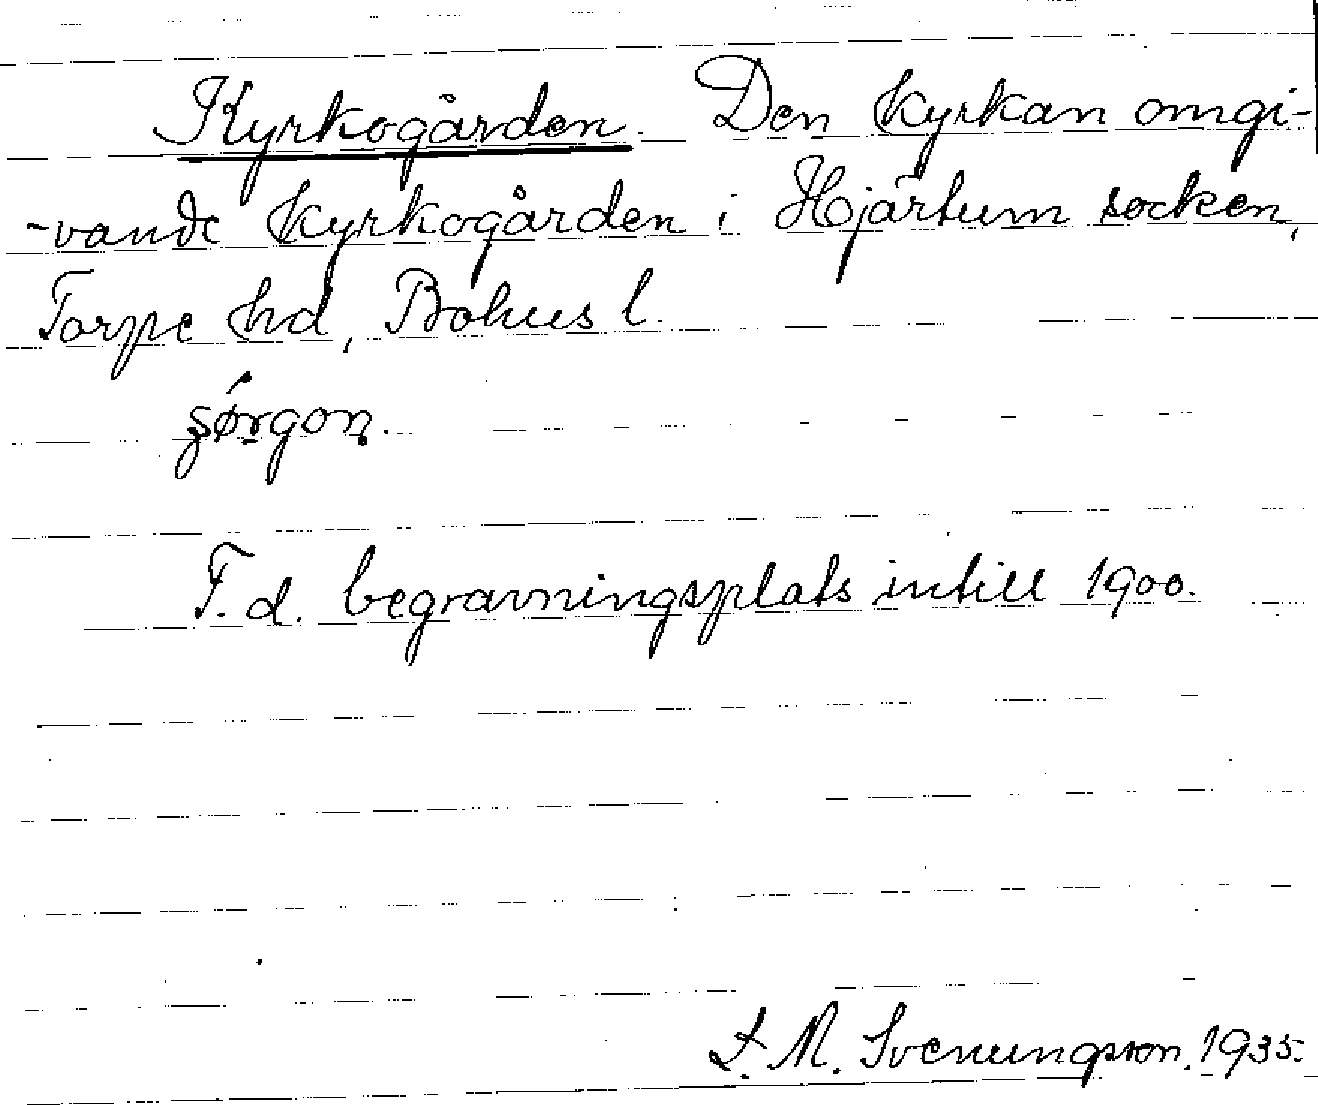 Kyrkogården. Den kyrkan omgi-
-vande kyrkogården i Hjärtum socken,
Torpe hd, Bohus l.
F. d. begravningsplats intill 1900.
L. M. Svenungsson. 1935.